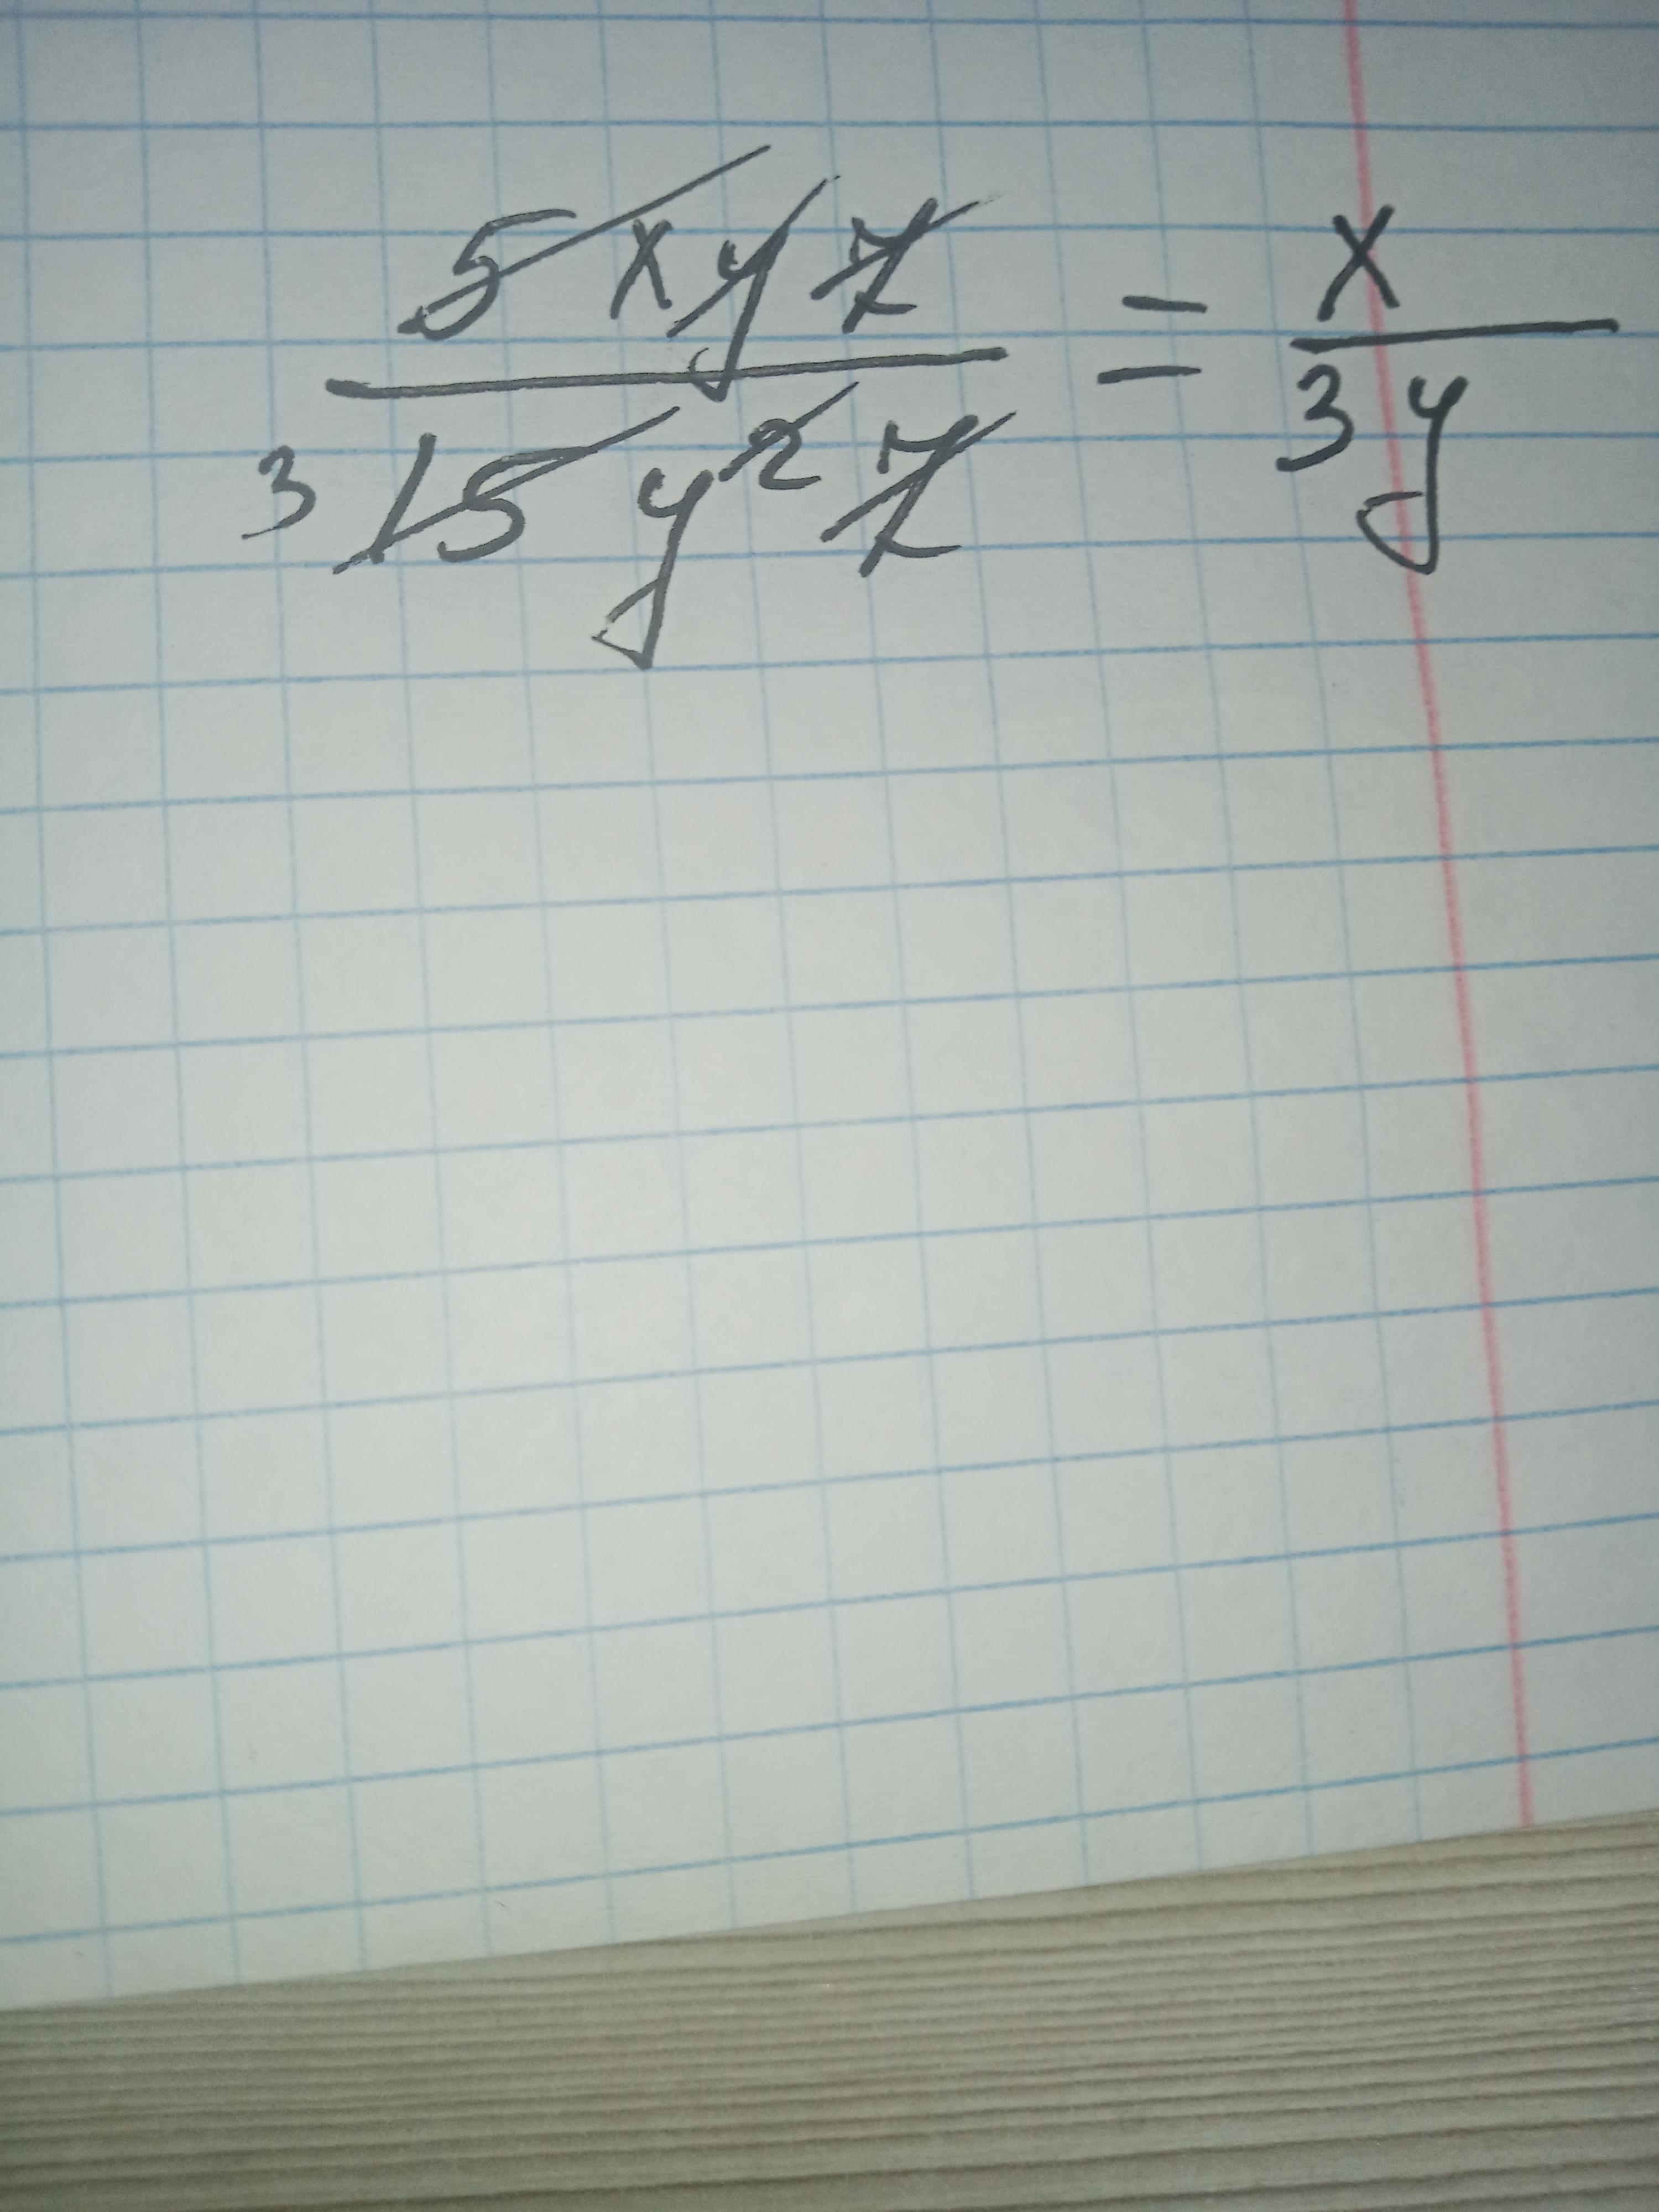 5xyz / 3 15y²z = x / 3y